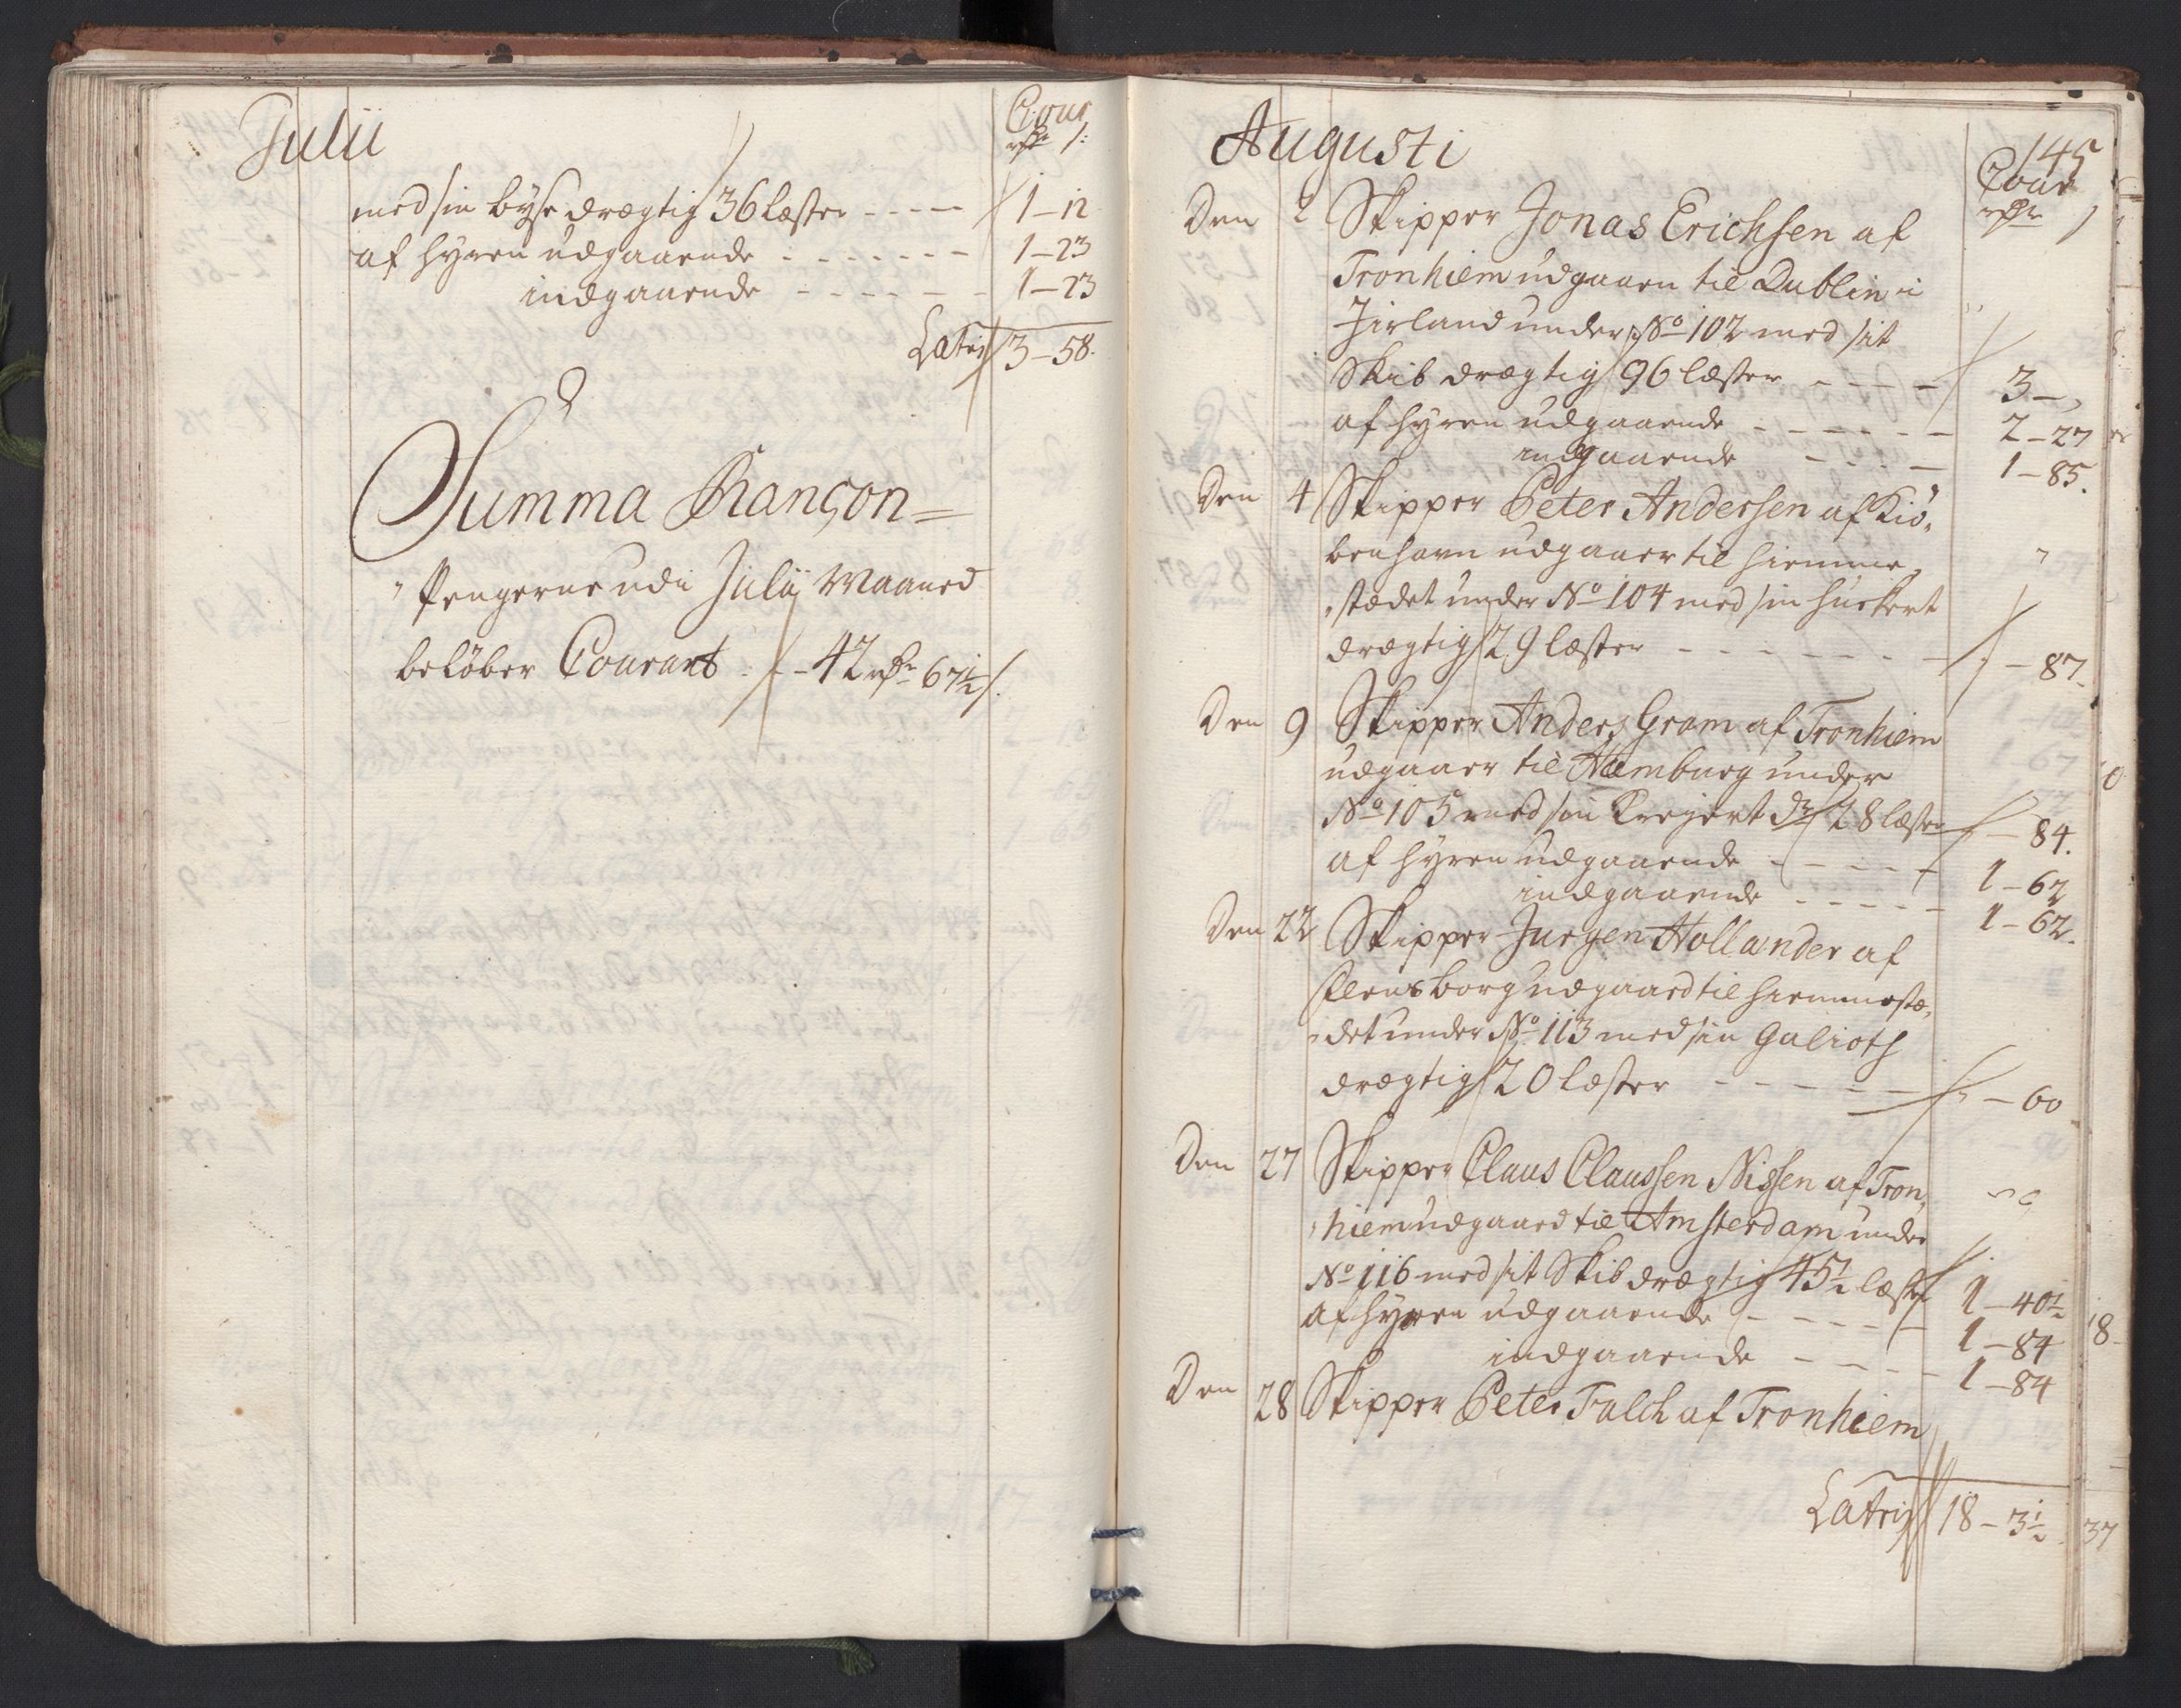 Julii
Cour
rdr ß:
med sin byse drægtig 36 læster - - - - 1 - 12
af hyren udgaaende - - - - - - - 1 - 23
indgaaende - - - - - - 1 - 23
Latris 3 - 58.
Summa Rançon=
Pengerne udi Julij Maaned
beløber Courant - 42 rdr 67½ ß.
145
Augusti
Cour
rdr ß
Den 2 Skipper Jonas Erichsen af
Tronhiem udgaaen til Dublin i
Jirland under No 102 med sit
Skib drægtig 96 læster - - - - 3 - "
af hyren udgaaende - - - - - - 2 - 27
indgaaende - - - - 1 - 85.
Den 4 Skipper Peter Andersen af Kiö-
benhavn udgaaer til hiemme-
stædet under No 104 med sin huckert
drægtig 29 læster - - - - - - - " - 87.
Den 9 Skipper Anders Gram af Tronhiem
udgaaer til Hamburg under
No 105 med sin Krejert dr 28 læster - 84.
af hyren udgaaende - - - - - 1 - 62
indgaaende - - - - - 1 - 62.
Den 22 Skipper Jurgen Hollander af
Flensborg udgaaed til hiemmestæ-
det under No 113 med sin Galioth
drægtig 20 læster - - - - - " - 60
Den 27 Skipper Claus Claussen Nissen af Tron-
hiem udgaaed til Amsterdam under
No 116 med sit Skib drægtig 45½ læster 1 - 40½
af hyren udgaaende - - - - - 1 - 84
indgaaende - - - - 1 - 84
Den 28 Skipper Peter Falch af Tronhiem
Latris 18 - 3½